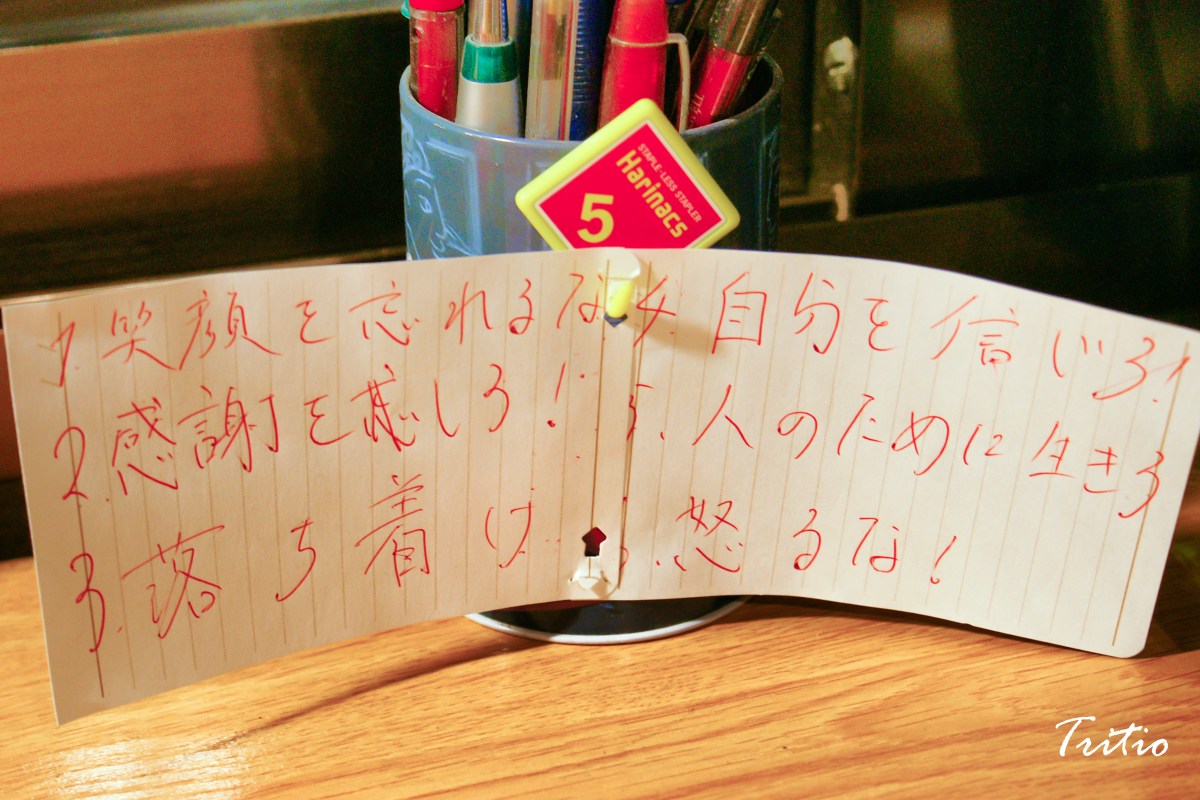 STAPLE-LESS STAPLER
Harinacs
5
1. 笑顔を忘れるな
2. 感謝を感じろ!
3. 落ち着け
4. 自分を信じろ!
5. 人のために生きろ
怒るな!
Tritio